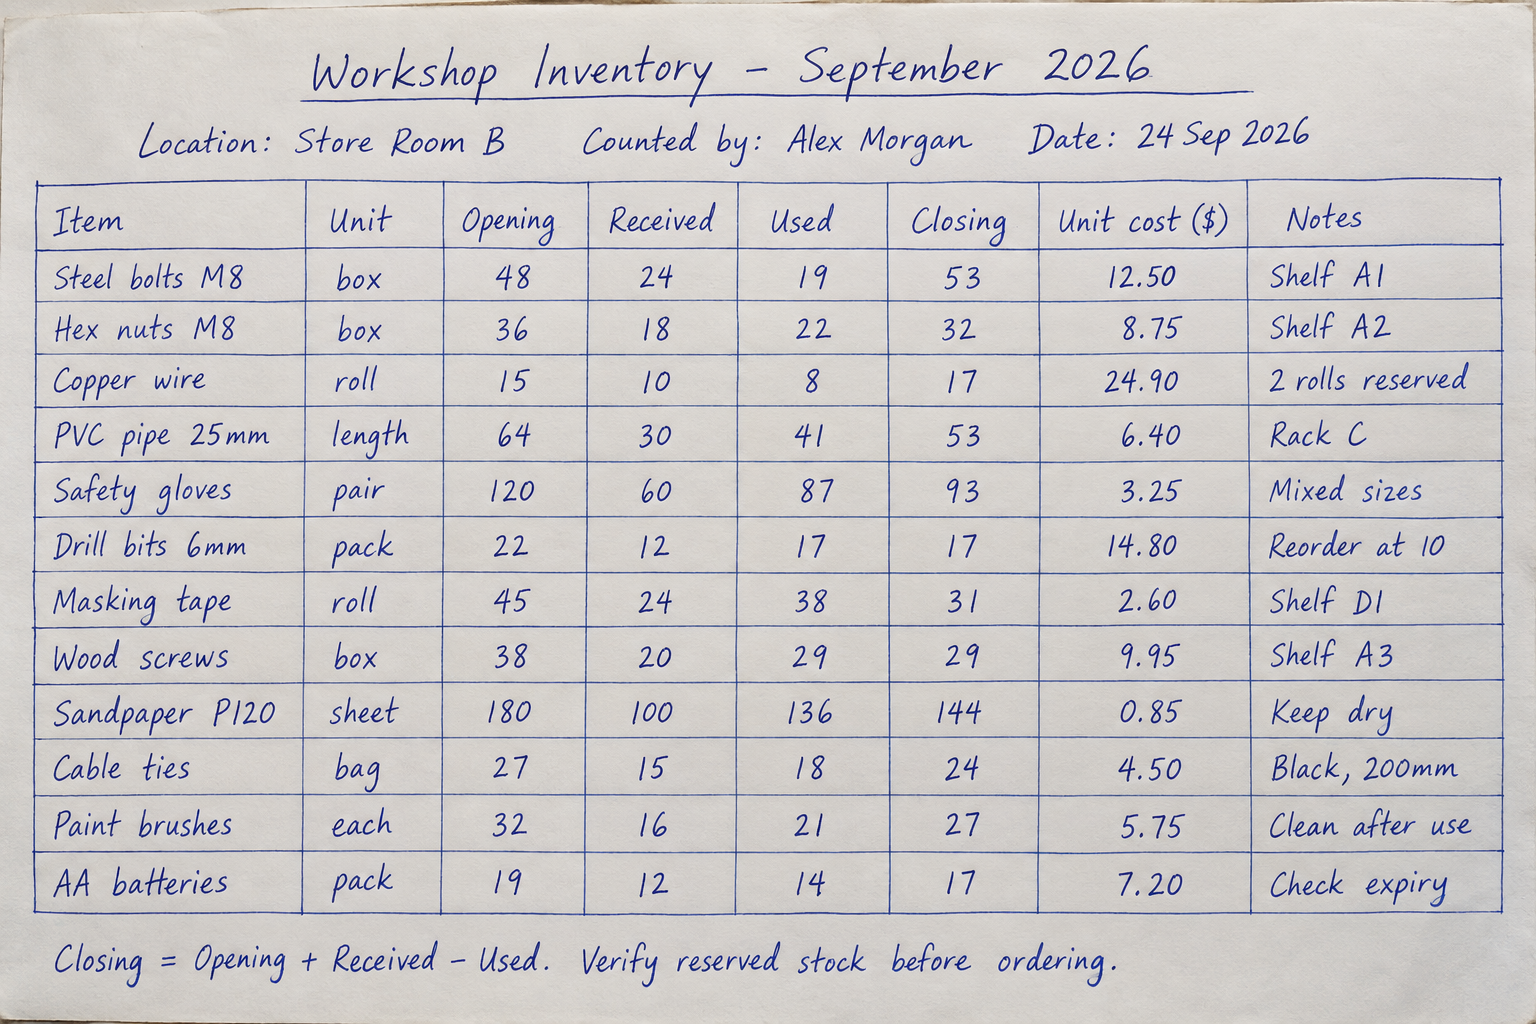 Workshop Inventory – September 2026
Location: Store Room B Counted by: Alex Morgan Date: 24 Sep 2026
Item Unit Opening Received Used Closing Unit cost ($) Notes
Steel bolts M8 box 48 24 19 53 12.50 Shelf A1
Hex nuts M8 box 36 18 22 32 8.75 Shelf A2
Copper wire roll 15 10 8 17 24.90 2 rolls reserved
PVC pipe 25mm length 64 30 41 53 6.40 Rack C
Safety gloves pair 120 60 87 93 3.25 Mixed sizes
Drill bits 6mm pack 22 12 17 17 14.80 Reorder at 10
Masking tape roll 45 24 38 31 2.60 Shelf D1
Wood screws box 38 20 29 29 9.95 Shelf A3
Sandpaper P120 sheet 180 100 136 144 0.85 Keep dry
Cable ties bag 27 15 18 24 4.50 Black, 200mm
Paint brushes each 32 16 21 27 5.75 Clean after use
AA batteries pack 19 12 14 17 7.20 Check expiry
Closing = Opening + Received – Used. Verify reserved stock before ordering.